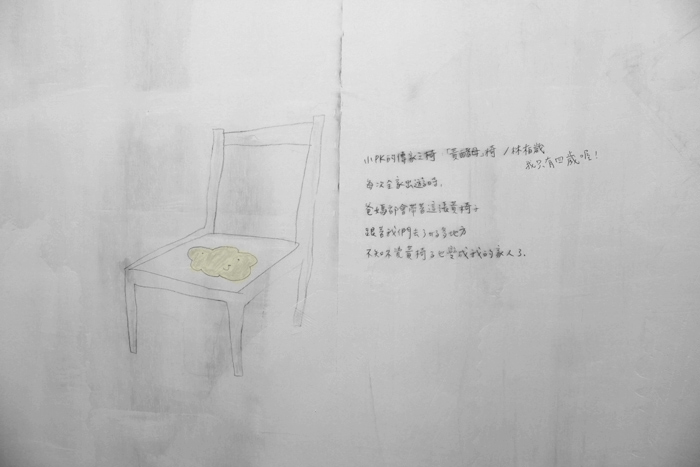 小PK的傳家之椅「黃酵母」椅 / 林柏歲
我只有四歲喔！
每次全家出遊時,
爸媽都會帶著這張黃椅子
跟著我們去了好多地方
不知不覺黃椅子也變成我的家人了.